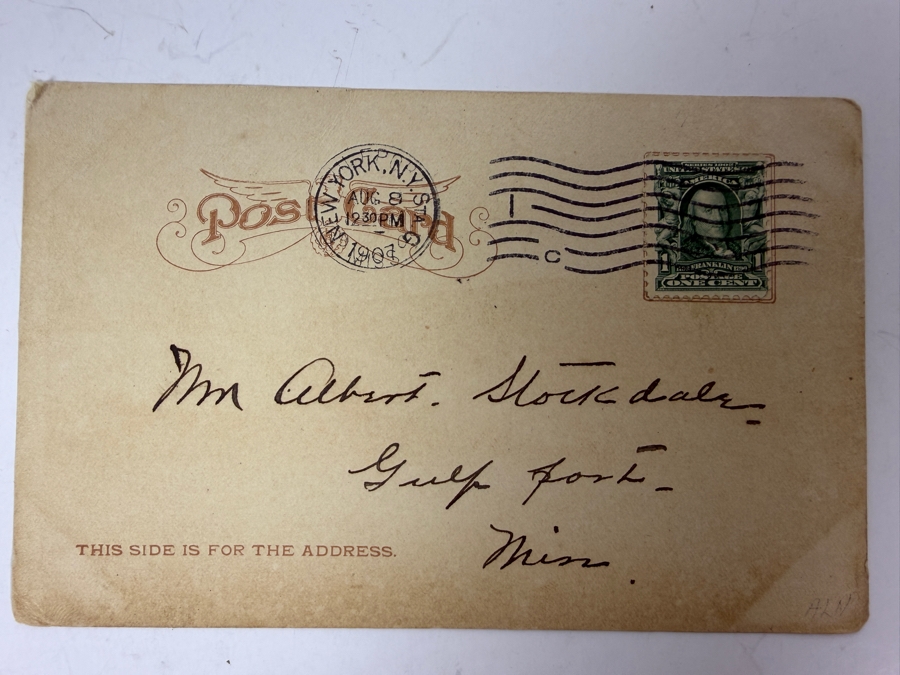 Post Card
NEW YORK, N.Y. STA. O
AUG 8
12 30 PM
1907
C
SERIES 1902
UNITED STATES OF
AMERICA
1 1
FRANKLIN
POSTAGE
ONE CENT
Mr Albert. Stockdale
Gulf port
Miss.
THIS SIDE IS FOR THE ADDRESS.